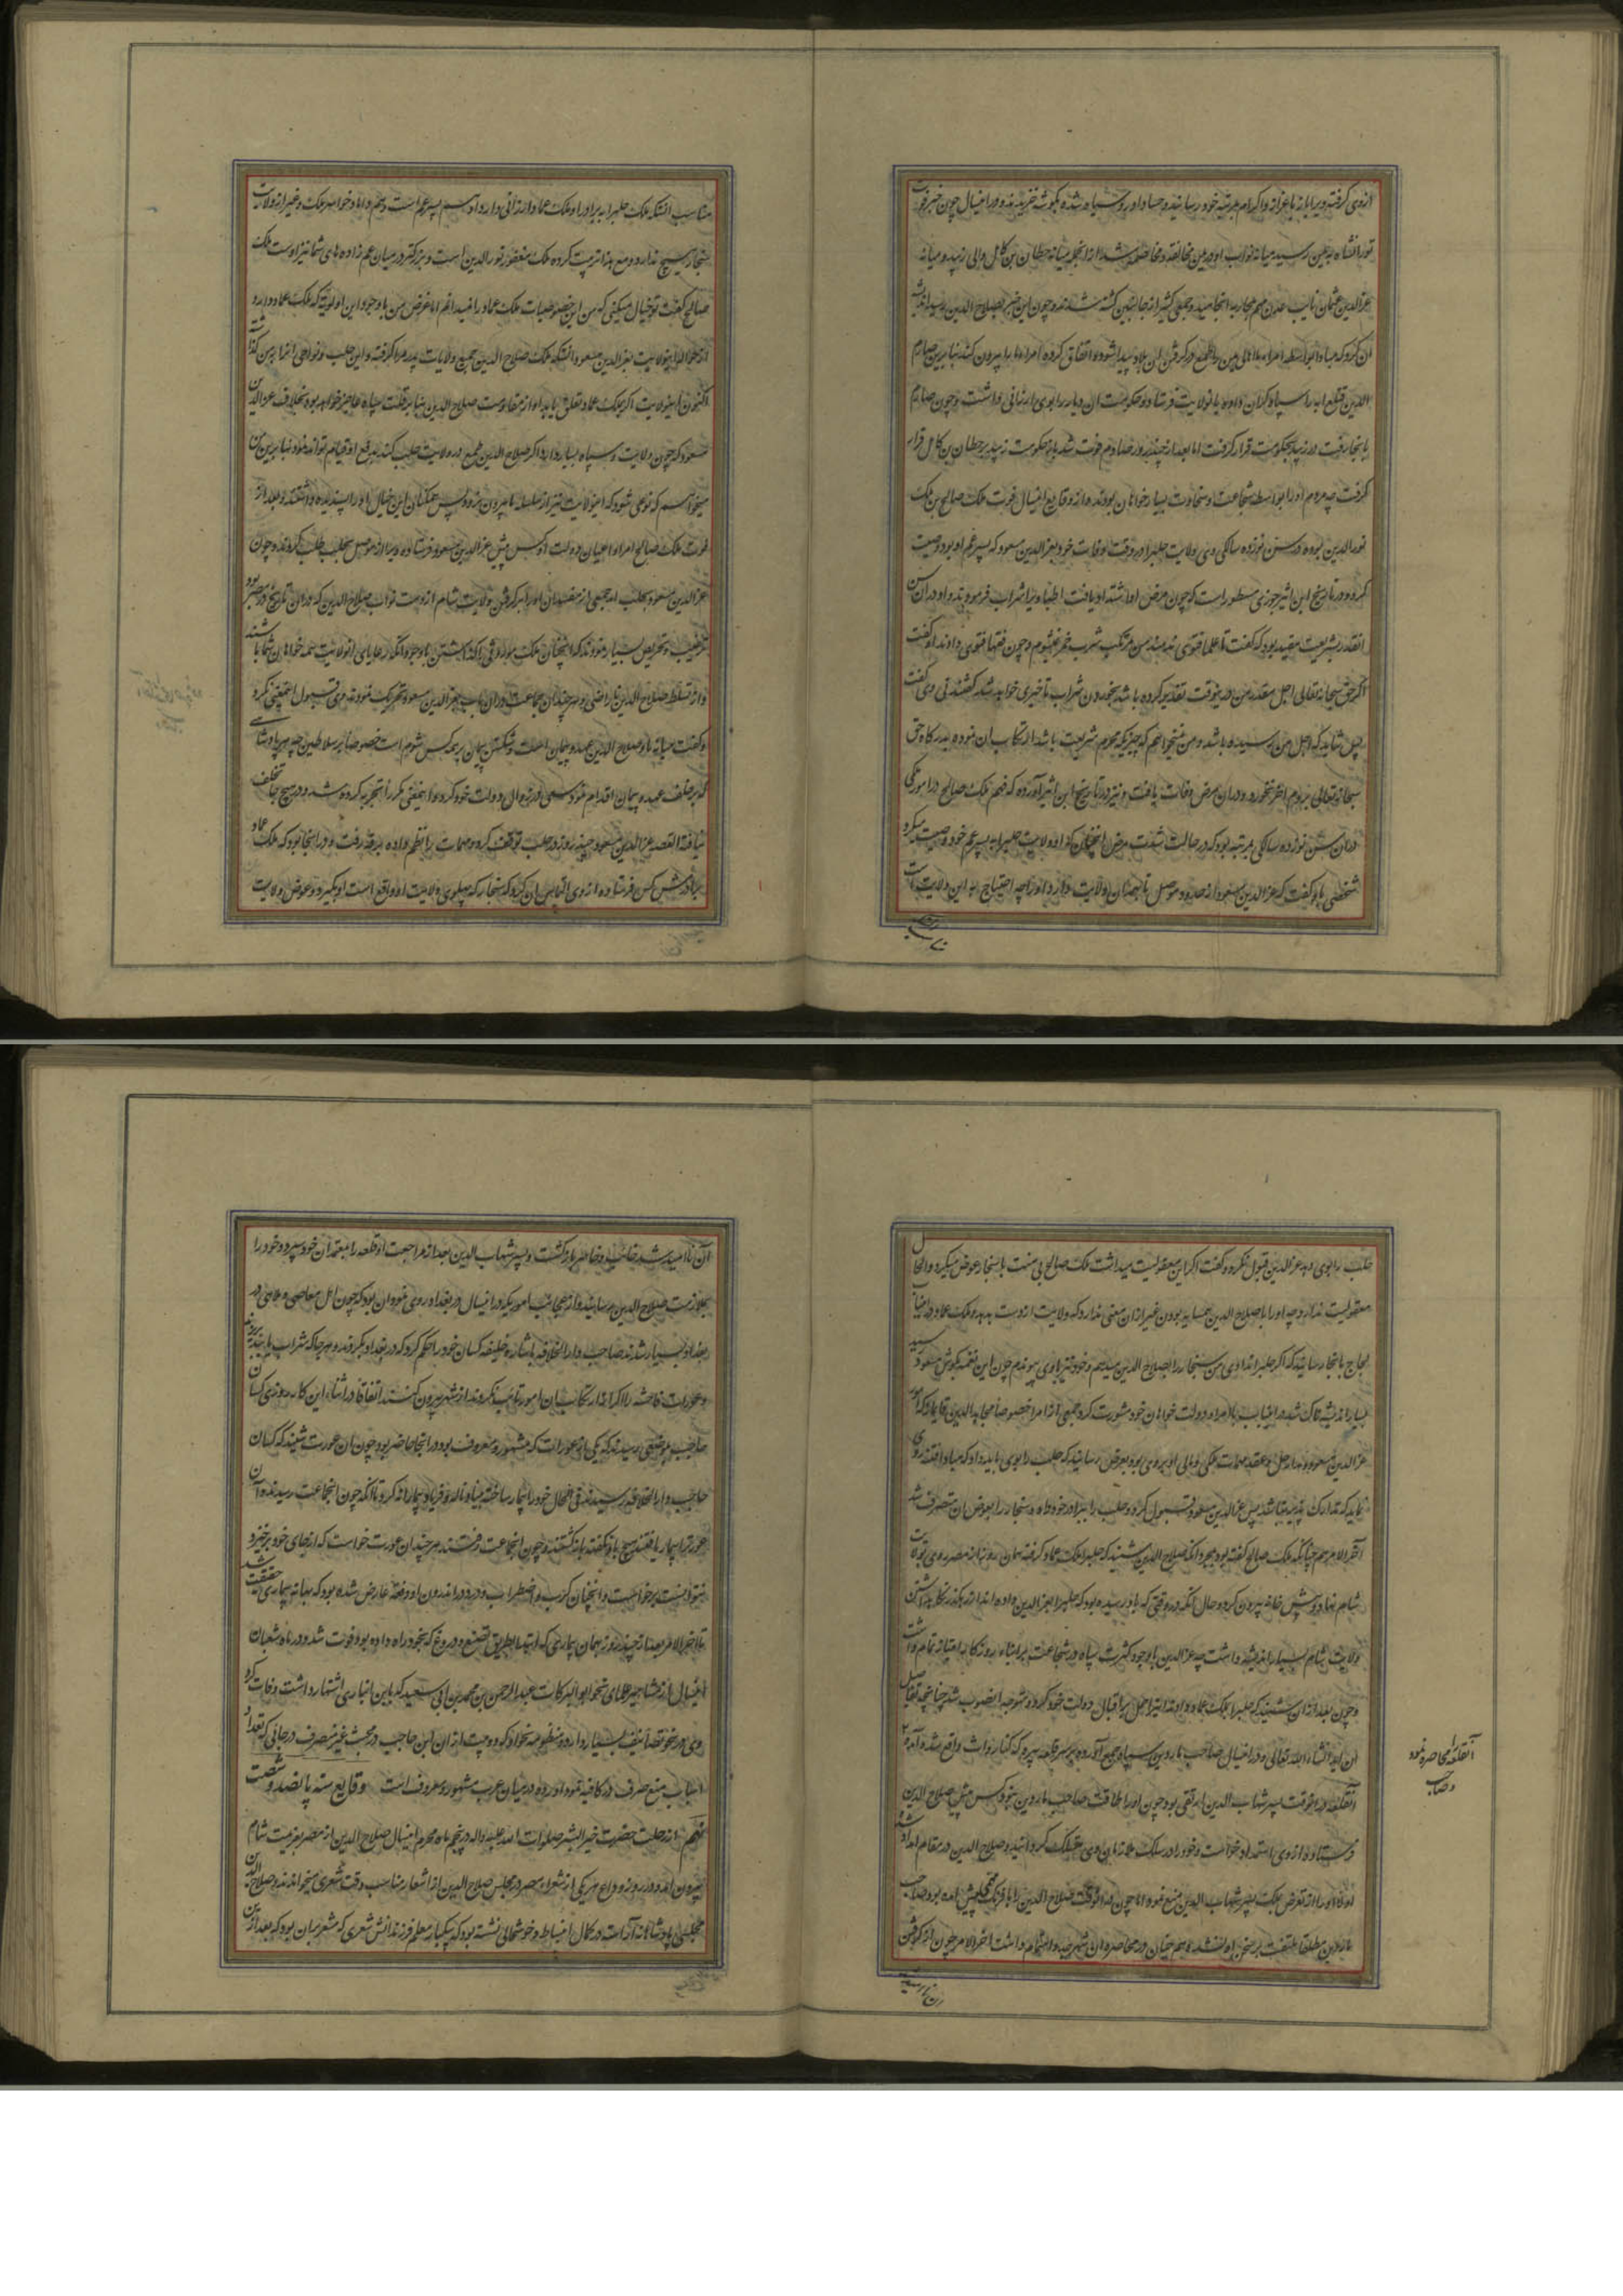 ازوی گرفته ویرا باز باعزاز واکرام بمرتبه خود رسانید و حساد او روسیاه شده بگوشه خزیدند و در اینسال چون خبر فوت
تورانشاه بیمن رسید میانه نواب او در یمن مخالفت و مخاصمه شد از انجمله میانه حطان بن کامل والی زبید و میانه
عزالدین عثمان نایب عدن مهم بمحاربه انجامید و جمعی کثیر از جانبین کشته شدند و چون این خبر بصلاح الدین رسید اندیشه
آن کرد که مبادا بواسطه امراء ما اهالی یمن را طمع در گرفتن آن بلاد پیدا شود و اتفاق کرده امراء ما را بیرون کنند بنابرین صارم
الدین قتلغ ابه را سپاه گران داده بانولایت فرستاد و حکومت آن دیار را بوی ارزانی داشت و چون صارم
بانجا رفت در زبید بحکومت قرار گرفت اما بعد از چند روز صارم فوت شد باز حکومت زبید بر حطان بن کامل قرار
گرفت چه مردم او را بواسطه شجاعت و سخاوت بسیار خواهان بودند و از وقایع اینسال فوت ملک صالح بن ملک
نورالدین بوده در سن نوزده سالگی وی ولایت حلب را در وقت وفات خود بعزالدین مسعود که پسر عم او بود وصیت
کرد و در تاریخ ابن اثیر جزری مسطور است که چون مرض او اشتداد یافت اطبا ویرا شراب فرمودند و او در آن سن
انقدر بشریعت مقید بود که گفت تا علما فتوی ندهند من مرتکب شرب خمر نمیشوم و چون فقها فتوی دادند او گفت
اگر حق سبحانه تعالی اجل مقدر من در ینوقت تقدیر کرده باشد بخوردن شراب تأخیری خواهد شد گفتند نی وی گفت
پس شاید که اجل من رسیده باشد و من نمیخواهم که چیزیکه محرم شریعت باشد ارتکاب آن نموده بدرگاه حق
سبحانه تعالی بروم آخر نخورد و در آن مرض وفات یافت و نیز در تاریخ ابن اثیر آورده که فهم ملک صالح در امور ملکی
در آن سن نوزده سالگی بمرتبه بود که در حالت شدت مرض انچنان که او ولایت حلب را به پسر عم خود وصیت میکرد
شخصی باو گفت که عزالدین مسعود از حدود موصل تا همدان ولایت دارد او را چه احتیاج به این ولایت است
مناسب آنستکه ملک حلب را به برادر او ملک عماد ارزانی دارد او هم پسر عم است و هم داماد خواهر ملک و غیر از ولایت
سنجار هیچ ندارد و مع هذا تربیت کرده ملک مغفور نورالدین است و بزرگتر در میان عم زاده های شما نیز اوست ملک
صالح گفت تو خیال میکنی که من این خصوصیات ملک عماد را نمیدانم اما غرض من با وجود این اولویت که ملک عماد دارد
از عطا اینولایت بعزالدین مسعود آنستکه ملک صلاح الدین جمیع ولایات پدر مرا گرفته و این حلب و نواحی آنرا بمن گذاشته
اکنون اینولایت اگر بملک عماد تعلق یابد او از مقاومت صلاح الدین بنابر قلت سپاه عاجز خواهد بود بخلاف عزالدین
مسعود که چون ولایت و سپاه بسیار دارد اگر صلاح الدین طمع در ولایت حلب کند بدفع او قیام تواند نمود بنابرین من
میخواهم که نوعی شود که اینولایت نیز از سلسله ما بیرون نرود پس همگنان این خیال او را پسندیده داشتند و بعد از
فوت ملک صالح امرا و اعیان دولت او کس پیش عزالدین مسعود فرستاده ویرا از موصل بحلب طلب کردند و چون
عزالدین مسعود بحلب آمد جمعی از مفسدان او را بر گرفتن ولایت شام از دست نواب صلاح الدین که در آن تاریخ در مصر بود
ترغیب و تحریص بسیار نمودند که انچنان ملک موروثی را گذاشتن با وجود آنکه رعایای انولایت همه خواهان شما باشند
و از تسلط صلاح الدین ناراضی و هر چند آن جماعت در آن باب بعزالدین مسعود تحریک نمودند وی قبول اینمعنی نکرد
و گفت میانه ما و صلاح الدین عهد و پیمان است و شکستن پیمان بر همه کس شوم است خصوصاً بر سلاطین چه هر پادشاهی
که بر خلف عهد و پیمان اقدام نمود سعی در زوال دولت خود کرد و اینمعنی مکرراً تجربه کرده شد و در هیچ جا تخلف
نیافته القصه عزالدین مسعود چند روز در حلب توقف کرد و مهمات را نظم داده برقه رفت و در انجا بود که ملک عماد
برادرش کس فرستاده از وی التماس آن کرد که سنجار که بپهلوی ولایت او واقع است او بگیرد و عوض ولایت
حلب را بوی دهد عزالدین قبول نکرد و گفت اگر این معقولیت میداشت ملک صالح بی منت با سنجار عوض میکرد و الحال
معقولیت ندارد چه او را با صلاح الدین همسایه بودن غیر از آن معنی ندارد که ولایت از دست بدهد و ملک عماد در اینباب
لجاج بانجا رسانید که اگر حلب را ندادی من سنجار را بصلاح الدین میدهم و خود نیز باوی پیوندم چون این نغمه بگوش مسعود رسید
بسیار اندیشناک شد در اینباب با امراء دولت خواهان خود مشورت کرد جمعی از امرا خصوصاً مجاهدالدین قایماز که امور
عزالدین مسعود و مدار حل و عقد مهمات ملکی و مالی او بر وی بود بعرض رسانید که حلب را بوی باید داد که مبادا فتنه روی
نماید که تدارک پذیر نباشد پس عزالدین مسعود قبول کرد و حلب را ببرادر خود داد و سنجار را بعوض آن متصرف شد
آخر الامر هم چنانکه ملک صالح گفته بود بمجرد آنکه صلاح الدین شنید که حلب را ملک عماد گرفته همان روز از مصر روی بولایت
شام نهاد و پیش خانه بیرون کرد و حال آنکه در وقتی که باو رسیده بود که حلب را بعزالدین داده اند از رهگذر نگاهداشتن
ولایت شام بسیار اندیشه داشت چه عزالدین با وجود کثرت سپاه در شجاعت بر ابناء روزگار امتیاز تمام داشت
و چون بعد از آن شنید که حلب را بملک عماد دادند اینرا حمل بر اقبال دولت خود کرد و متوجه انصوب شد چنانچه تفاصیل
آن بیاید انشاء الله تعالی و در اینسال صاحب ماردین سپاه جمع آورده بر سر قلعه بیره که کنار فرات واقع شده آمد
آنقلعه در آنوقت پسر شهاب الدین ارتقی بود چون او را طاقت صاحب ماردین نبود کس پیش صلاح الدین
فرستاد و از وی استمداد خواست و خود را در سلک ملازمان وی منسلک گردانید و صلاح الدین در مقام امداد شده
آنقلعه را محاصره نمود
و صاحب
اوقاصد را از تعرض بملک پسر شهاب الدین منع نمود اما چون در آنوقت صلاح الدین را با فرنگ مهمی پیش آمده بود صاحب
ماردین مطلقاً ملتفت بر سخن او نشد و همچنان در محاصره آن شهر جد و اهتمام داشت آخر الامر چون از گرفتن
آن ناامید شد خائب و خاسر بازگشت و پسر شهاب الدین بعد از مراجعت او قلعه را بمعتمدان خود سپرد و خود را
بملازمت صلاح الدین رسانید و از عجایب امور یکه در اینسال در بغداد روی نمود آن بود که چون اهل معاصی و ملاهی در
بغداد بسیار شدند صاحب دار الخلافه باشاره خلیفه کسان خود را حکم کرد که در بغداد بگردند و هر جا که شراب یابند بریزند
و عورات فاحشه را اگر از ارتکاب آن امور تائب نگردند از شهر بیرون کنند اتفاقاً در اثناء این کار روزی کسان
صاحب بموضعی رسیدند که یکی از عورات که مشهور و معروف بود در انجا حاضر بود چون آن عورت شنید که کسان
صاحب دار الخلافه رسیدند فی الحال خود را بیمار ساخته بنیاد ناله و فریاد بیمارانه کرد تا آنکه چون انجماعت رسیدند آن
عورت را بیمار یافتند هیچ باو نگفته بازگشتند و چون انجماعت رفتند هر چند آن عورت خواست که از جای خود برخیزد
نتوانست برخاست و انچنان کرب و اضطراب و درد در اندرون او دفعه عارض شده بود که بهانه بیماری حقیقت شد
تا آخر الامر بعد از چند روز بهمان بیماری که ابتدا بطریق تصنع و دروغ که بخود راه داده بود فوت شد و در ماه شعبان
اینسال از مشاهیر علمای نحو ابو البرکات عبد الرحمن بن محمد بن ابی سعید که باین انباری اشتهار داشت وفات کرد
وی در نحو تصانیف بسیار دارد و منظومه نحو او که دو بیت از آن ابن حاجب در مبحث غیر منصرف در جائی که تعداد
اسباب منع صرف در کافیه نموده آورده در میان عرب مشهور و معروف است وقایع سنه پانصد و شصت
نهم از رحلت حضرت خیر البشر صلوات الله علیه و اله در پنجم ماه محرم اینسال صلاح الدین از مصر بعزیمت شام
بیرون آمد و در روز وداع هر یکی از شعراء مصر در مجلس صلاح الدین از اشعار مناسب وقت شعری میخواندند و صلاح الدین
مجلس پادشاهانه آراسته در کمال انبساط و خوشحالی نشسته بود که بیکبار معلم فرزندانش شعری که مشعر بآن بود که بعد ازین